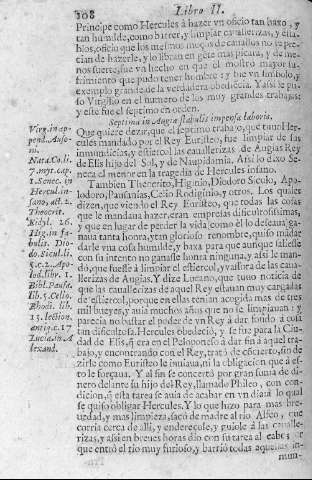 108 Libro II.
Principe como Hercules à hazer vn oficio tan baxo, y
tan humilde, como barrer, y limpiar cauallerizas, y esta-
blos, oficio que los mesmos moços de cauallos no se pre-
cian de hazerle, y lo libran en gēte mas picara, y de me-
nos suerte, fue vn hecho en que èl mostro mayor su-
frimiento que pudo tener hombre: y fue vn simbolo, y
exemplo grande de la verdadera obediēcia. Y assi le pu-
so Virgilio en el numero de los muy grandes trabajos:
y este fue el septimo en orden.
Septima in Augiæ stabulis impensa laboris.
Que quiere dezir, que el septimo trabajo, que tuuo Her-
cules mandado por el Rey Euristeo, fue limpiar de sus
inmundicias, y estiercol las cauallerizas de Augias Rey
de Elis hijo del Sol, y de Naupidamia. Assi lo dixo Se-
neca el menor en la tragedia de Hercules infano.
Tambien Theocrito, Higinio, Diodoro Siculo, Apo-
lodoro, Pausanias, Celio Rodiginio, y otros. Los quales
dizen, que viendo el Rey Euristeo, que todas las cosas
que le mandaua hazer, eran empresas dificultosissimas,
y que en lugar de perder la vida, como èl lo desseaua, ga-
naua tanta honra, y tan glorioso renombre, quiso mādar
darle vna cosa humilde, y baxa para que aunque saliesse
con su intento no ganasse honra ninguna, y assi le man-
dò, que fuesse à limpiar el estiercol, y vasura de las caua-
llerizas de Augias. Y dize Luciano, que tuuo noticia de
que las cauallerizas de aquel Rey estauan muy cargadas
de estiercol, porque en ellas tenian acogida mas de tres
mil bueyes, y auia muchos años que no se limpiauan: y
parecia no bastar el poder de vn Rey à dar fondo à cosa
tan dificultosa. Hercules obedeciò, y se fue para la Ciudad
de Elis, q̃ era en el Peloponeso à dar fin à aquel tra-
bajo, y encontrando con el Rey, tratò de cōcierto, sin de-
zirle como Euristeo le inuiaua, ni la obligacion que à es-
to le forçaua. Y al fin se concertò por gran suma de di-
nero delante su hijo del Rey, llamado Phileo, con con-
dicion, q̃ esta tarea se auia de acabar en vn dia à lo qual
se quiso obligar Hercules. Y lo que hizo para mas bre-
uedad, y mas limpieza, sacò de madre al rio Alfeo, que
corria cerca de alli, y enderecole, y guiole à las caualle-
rizas, y assi en breues horas dio con su tarea al cabo: por
que entrò el rio muy furioso, y barriò todas aquellas in-
mun-
Virg. in ap-
pend. Auso-
ni.
Nata. Co. li.
7. myt. cap.
1. Senec. in
Hercul. in-
sano, act. 2.
Theocrit.
Eidyl. 26.
Hig. in fa-
bulis. Dio-
do. Sicul. li.
5. c. 2. Apo-
lod. lib. 2.
Bibl. Pausa.
lib. 5. Celio.
Rhodi. lib.
13. lection.
antiq. c. 17
Lucia. in A
lexand.